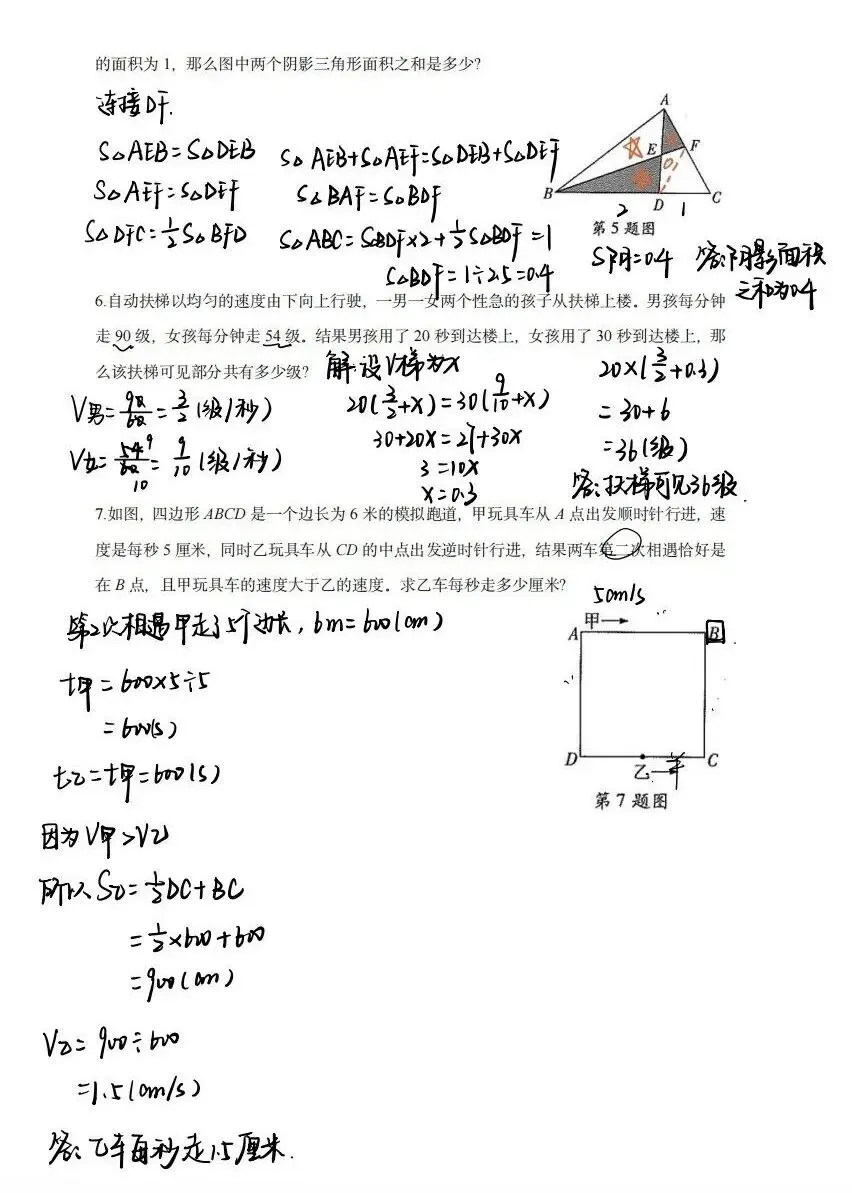 的面积为 1，那么图中两个阴影三角形面积之和是多少?
连接DF.
S△AEB=S△DEB
S△AEF=S△DEF
S△DFC=1/2S△BFD
S△AEB+S△AEF=S△DEB+S△DEF
S△BAF=S△BDF
S△ABC=S△BDF×2+1/2S△BDF=1
S△BDF=1÷2.5=0.4
A
E
F
B
D
C
2
1
第 5 题图
S阴=0.4
答:阴影面积
之和为0.4
6.自动扶梯以均匀的速度由下向上行驶，一男一女两个性急的孩子从扶梯上楼。男孩每分钟
走 90 级，女孩每分钟走 54 级。结果男孩用了 20 秒到达楼上，女孩用了 30 秒到达楼上，那
么该扶梯可见部分共有多少级?
V男=90/60=3/2(级/秒)
V女=54/60=9/10(级/秒)
解:设V梯为x
20(3/2+x)=30(9/10+x)
30+20x=27+30x
3=10x
x=0.3
20×(3/2+0.3)
=30+6
=36(级)
答:扶梯可见36级.
7.如图，四边形 ABCD 是一个边长为 6 米的模拟跑道，甲玩具车从 A 点出发顺时针行进，速
度是每秒 5 厘米，同时乙玩具车从 CD 的中点出发逆时针行进，结果两车第二次相遇恰好是
在 B 点，且甲玩具车的速度大于乙的速度。求乙车每秒走多少厘米?
第2次相遇甲走了5个边长，6m=600(cm)
t甲=600×5÷5
=600(s)
t乙=t甲=600(s)
因为V甲>V乙
所以S乙=1/2DC+BC
=1/2×600+600
=900(cm)
V乙=900÷600
=1.5(cm/s)
答:乙车每秒走1.5厘米.
5cm/s
甲
A
B
D
乙
C
第 7 题图